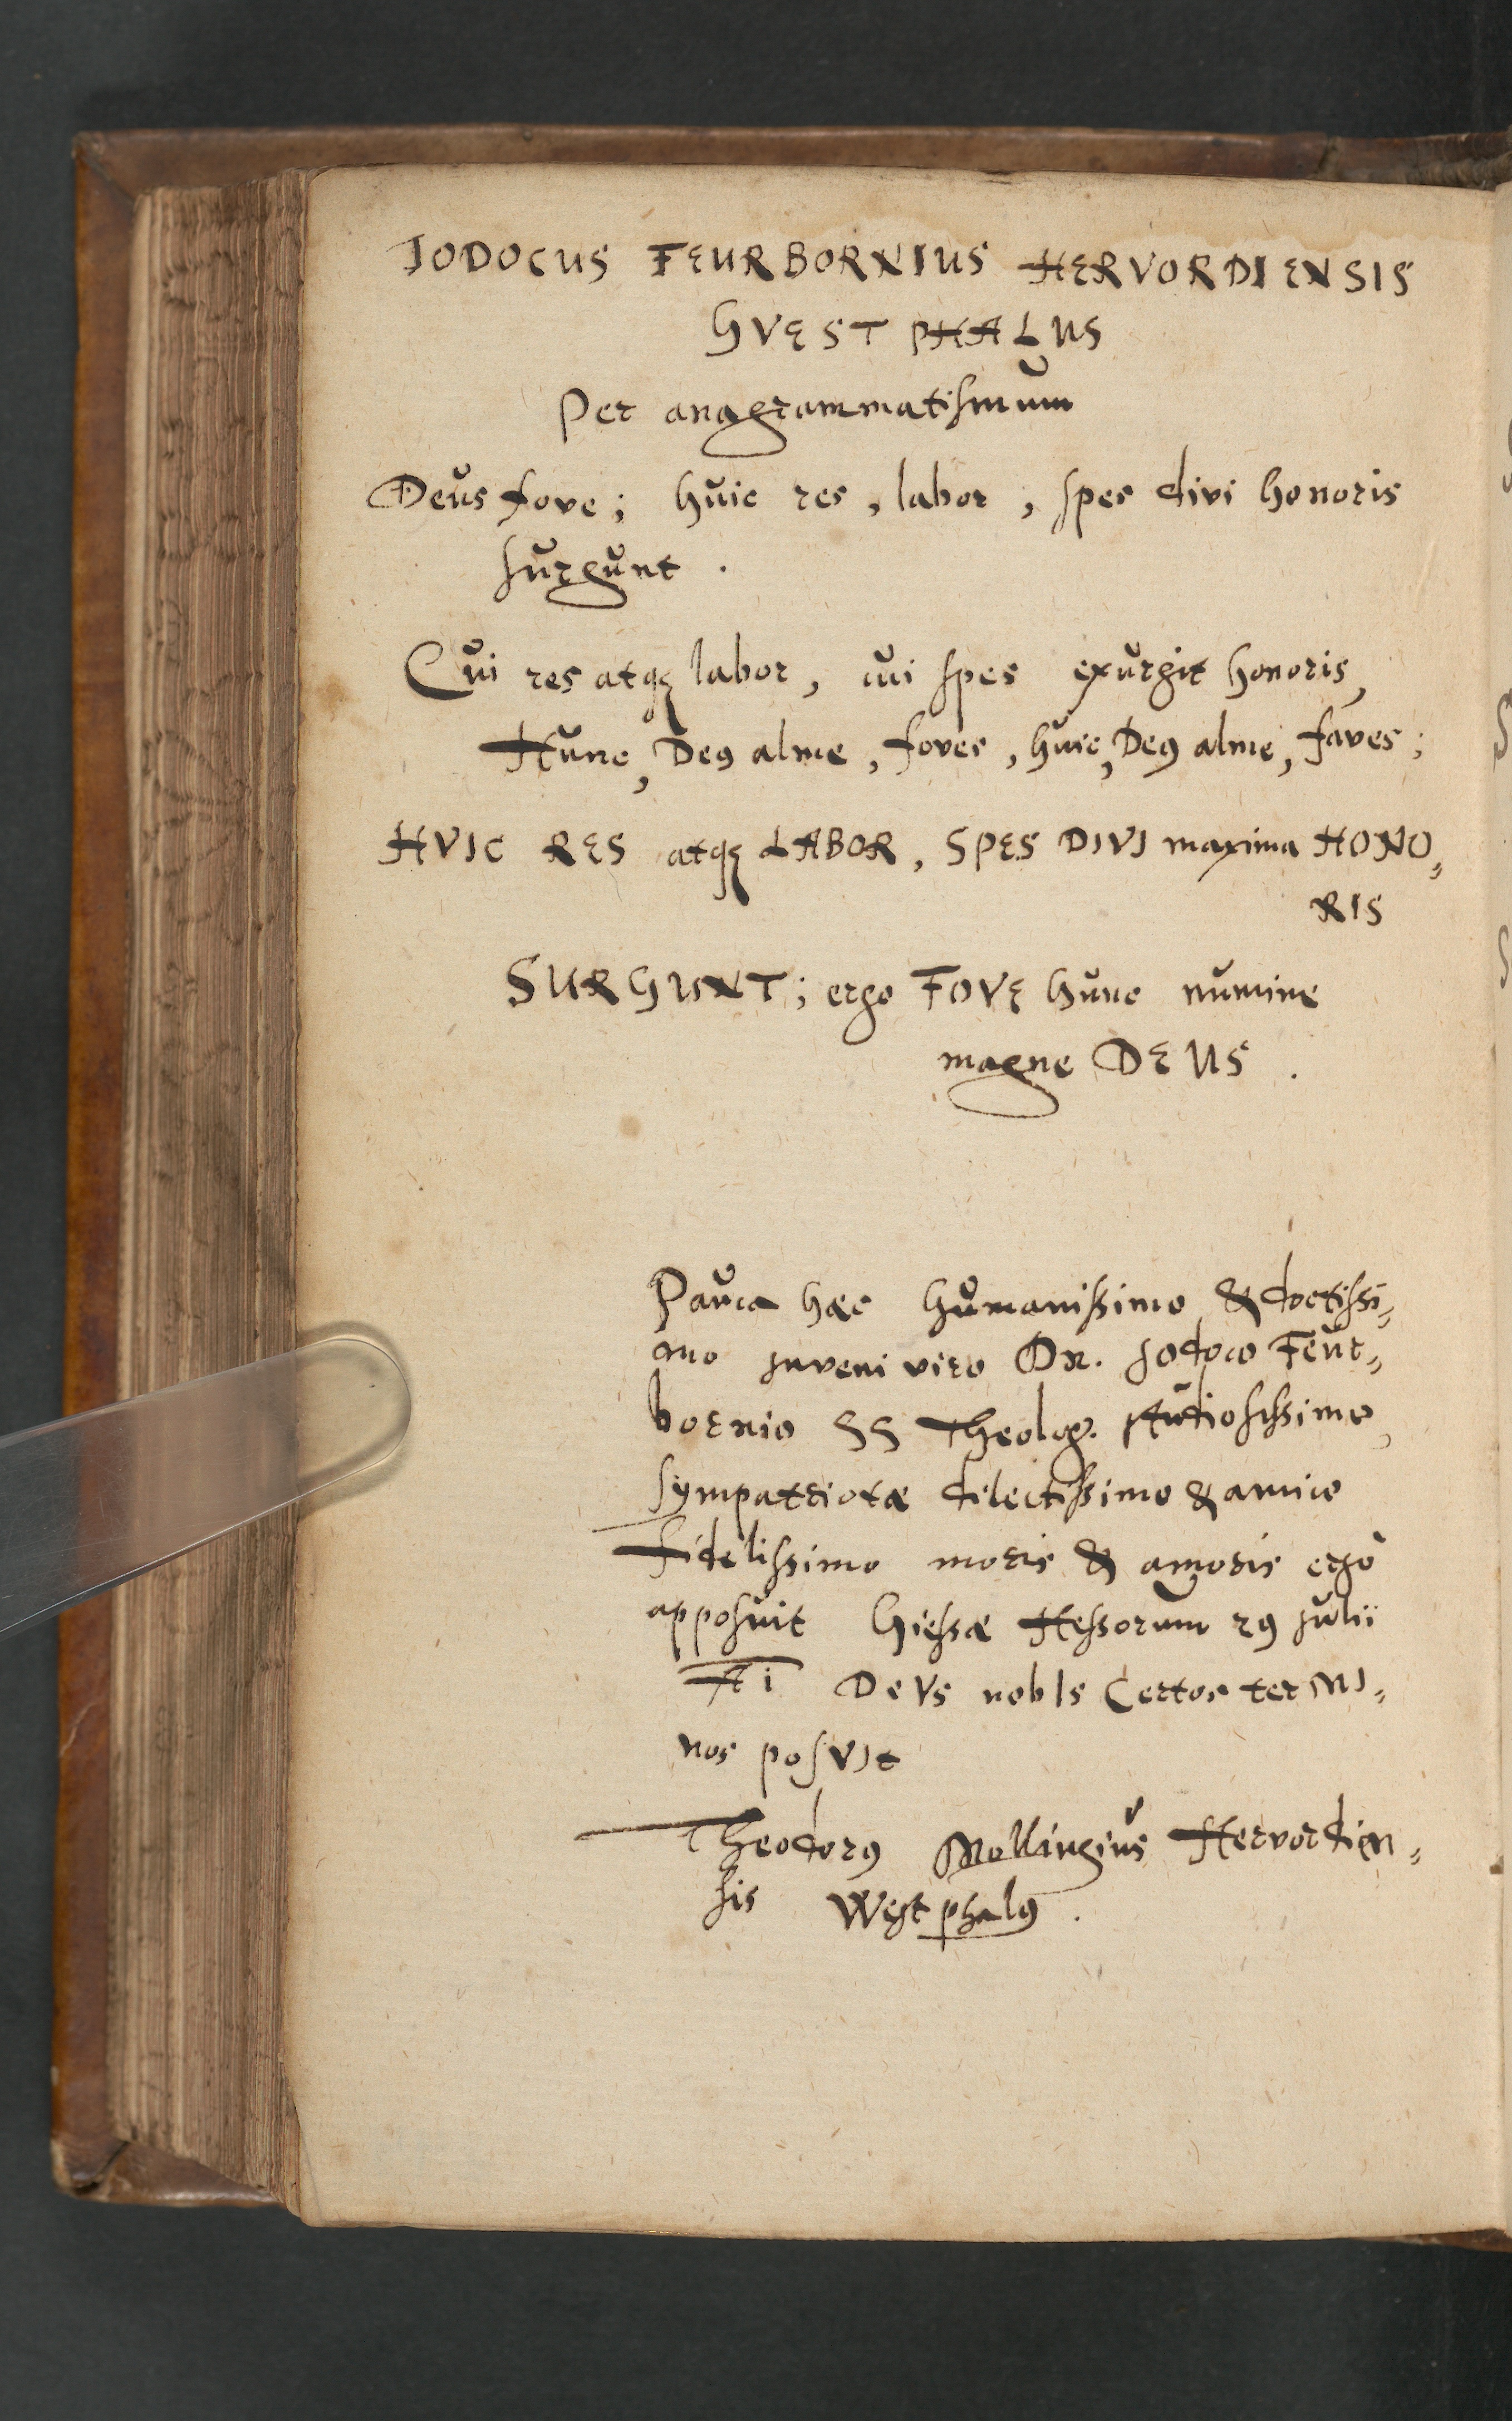 JODOCUS FEURBORNIUS HERVORDIENSIS
GVESTPHALUS
Per anagrammatismum
Deus fove; huic res, labor, spes divi honoris
surgunt.
Cui res atq labor, cui spes exurgit honoris,
Hunc, De9 alme, foves, huic, De9 alme, faves;
HVIC RES atq LABOR, SPES DIVI maxima HONO„
RIS
SURGUNT; ergo FOVE hunc numine
magne DEUS.
Pauca haec humanissimo & doctissi„
mo juveni viro Dn. Jodoco Feur„
bornio SS Theolog. studiosissimo,
sympatriotae dilectissimo & amico
fidelissimo moris & amoris ergò
apposuit Giessae Hessorum 29 Julii
Ai DeVs nobIs Certos terMI„
nos posVIt
Theodor9 Mollingius Hervordien„
sis Westphal9.